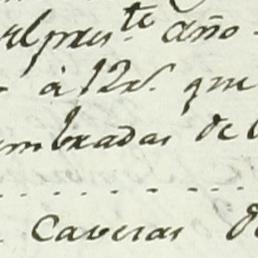 el pres.te año
à 12 r.s que
mbradas de
Caveras de